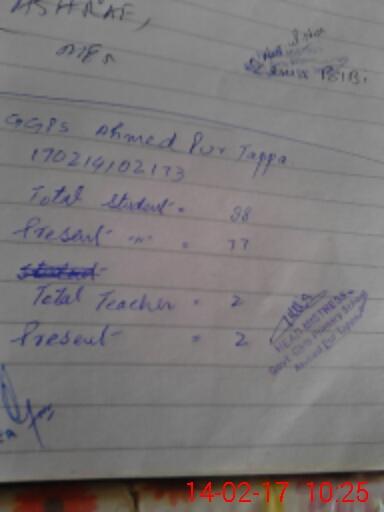 ASHRAF,
GGPS Ahmed Pur Tappa
170214102173
Total Student = 88
Present " = 77
Total Teacher = 2
Present = 2
HEAD MISTRESS
Govt. Girls Primary School
Ahmed Pur Tappa
14-02-17 10:25